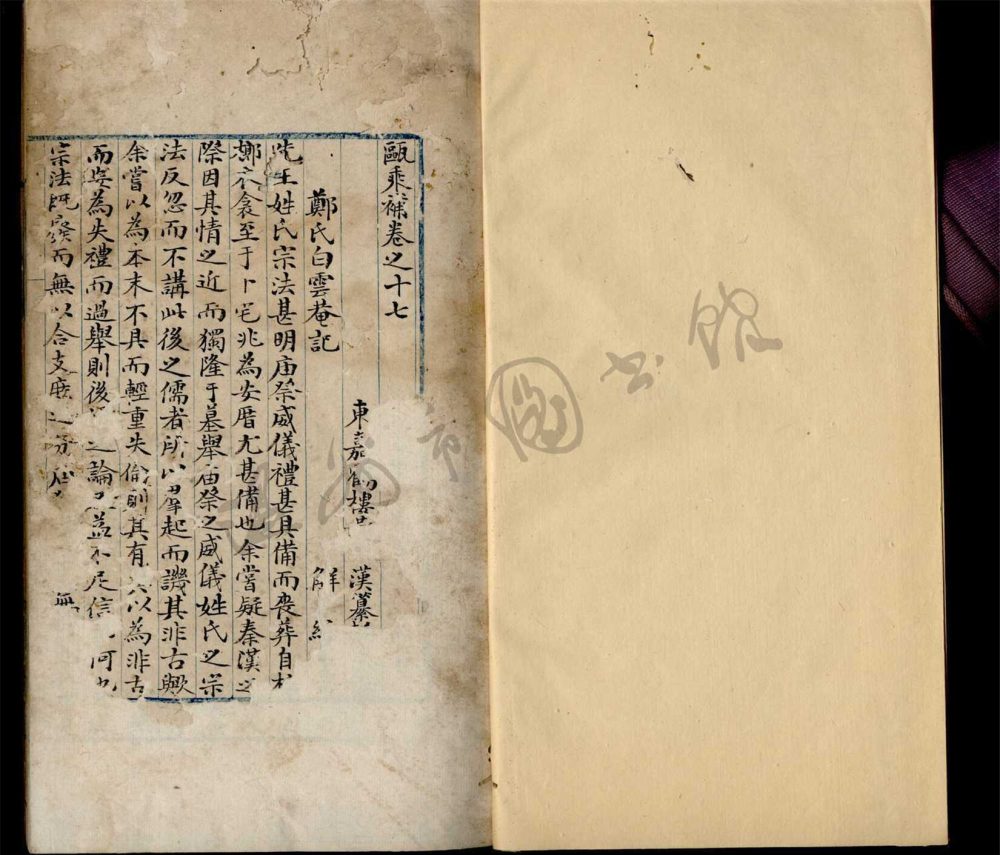 甌乘補卷之十七
東嘉 樓 漢纂
鄭氏白雲菴記 解
先王姓氏宗法甚明庙祭威儀禮甚具備而喪葬自
槨衣衾至于卜宅兆為安厝尤甚備也余嘗疑秦漢之
際因其情之近而獨隆于墓舉庙祭之威儀姓氏之宗
法反忽而不講此後之儒者所以羣起而譏其非古歟
余嘗以為本末不具而輕重失倫則其有 以為非古
而與為失禮而過舉則後 之論 益不足信 何也
宗法既廢而無以合支庶之分 無
圖書館